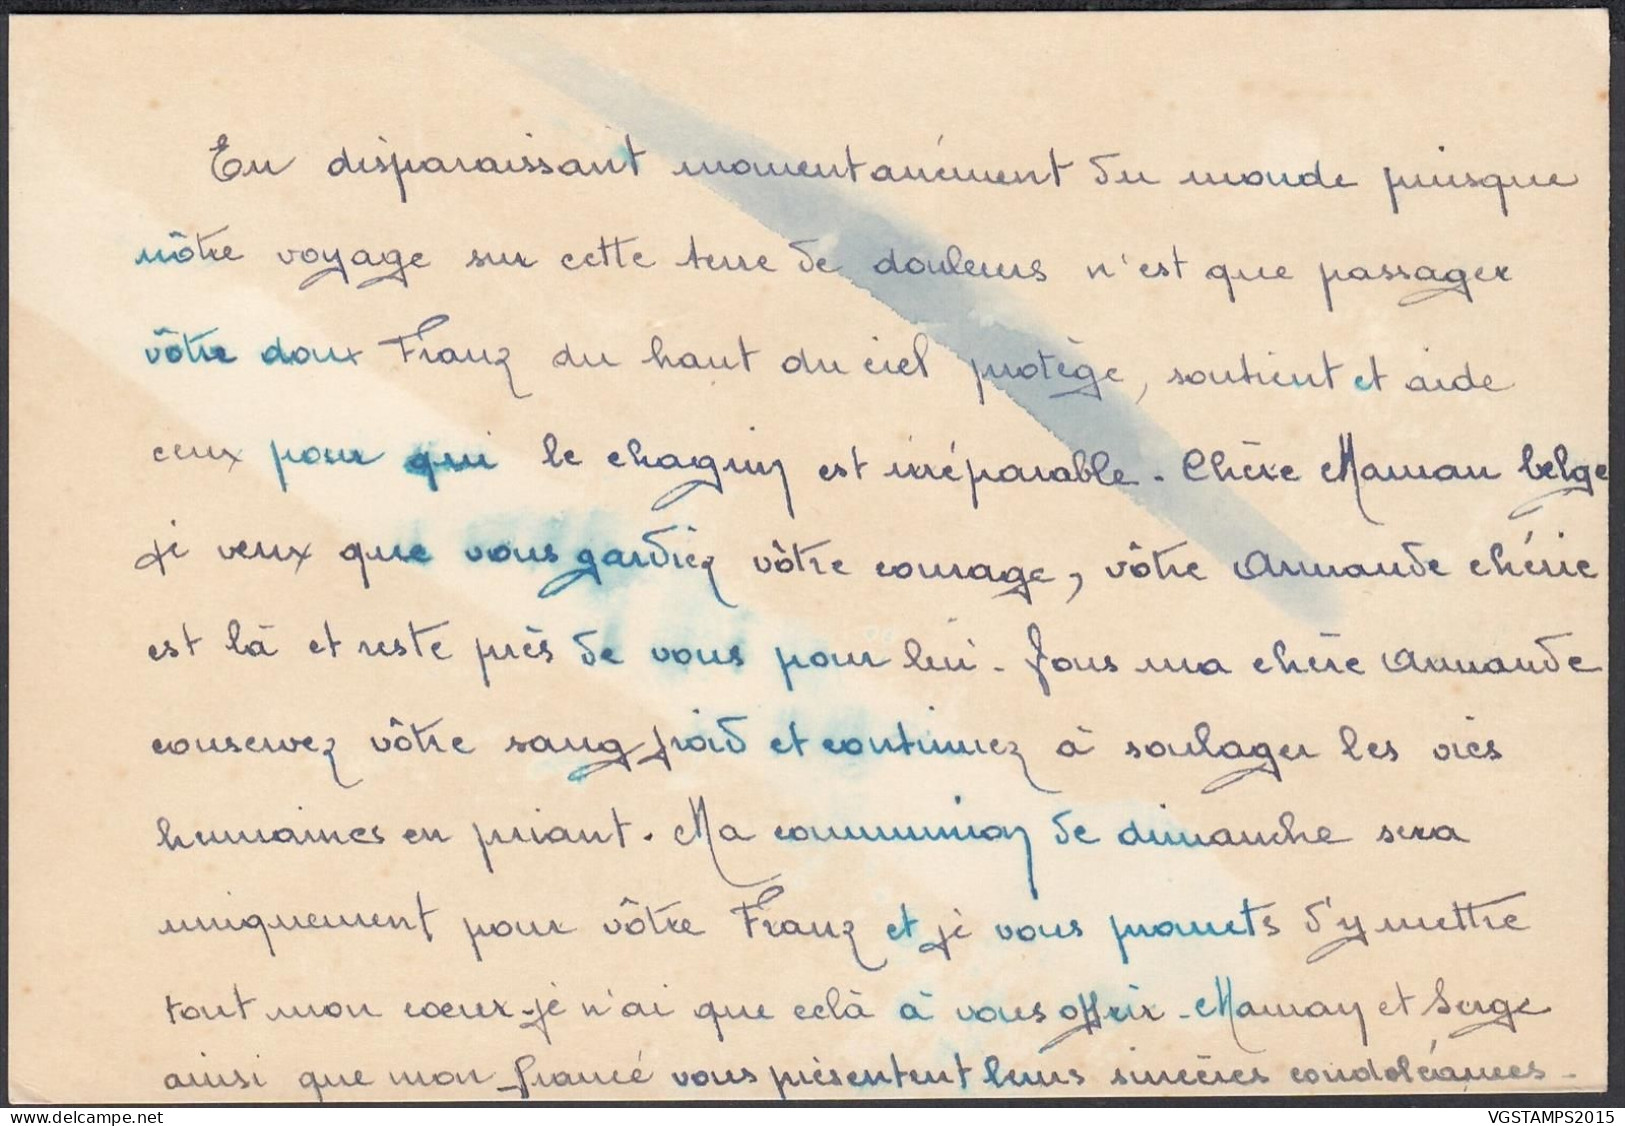 En disparaissant momentanément du monde puisque
nôtre voyage sur cette terre de douleurs n'est que passager
vôtre doux Franz du haut du ciel protège, soutient et aide
ceux pour qui le chagrin est irréparable. Chère Maman belge
je veux que vous gardiez vôtre courage, vôtre Armande chérie
est là et reste près de vous pour lui. Vous ma chère Armande
conservez vôtre sang froid et continuez à soulager les vies
humaines en priant. Ma communion de dimanche sera
uniquement pour vôtre Franz et je vous promets d'y mettre
tout mon coeur. je n'ai que celà à vous offrir. Maman et Serge
ainsi que mon fiancé vous présentent leurs sincères condoléances.
delcampe.net
VGSTAMPS2015